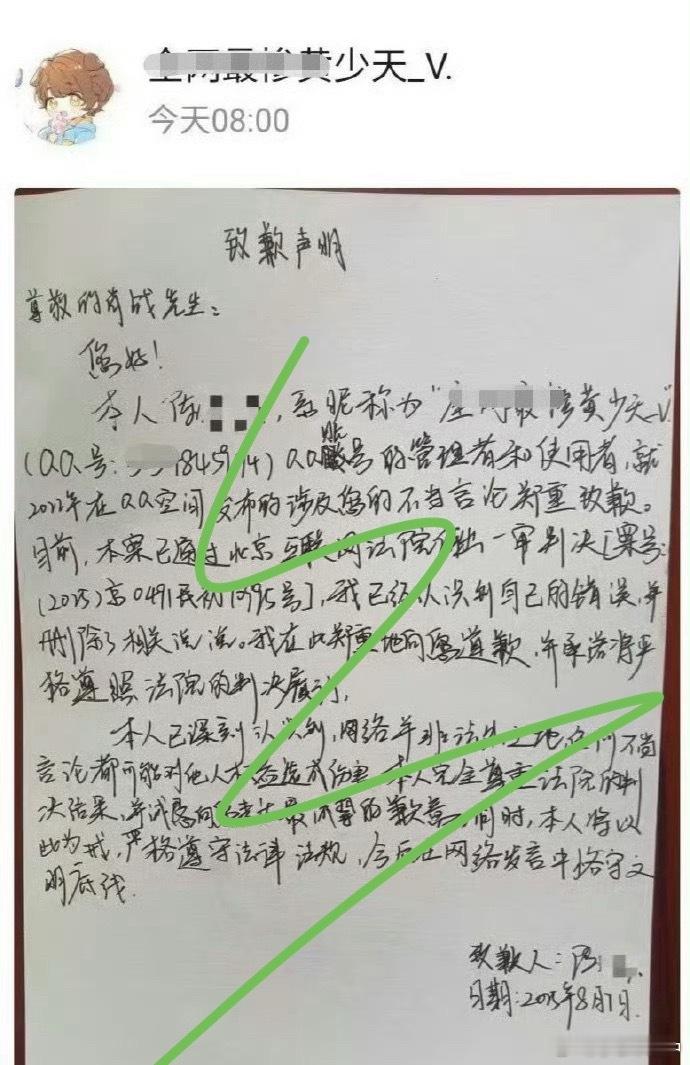 全网最惨黄少天_V.
今天08:00
致歉声明
尊敬的肖战先生：
您好！
本人陈，系昵称为"全网最惨黄少天_V."
（QQ号：1845914）QQ账号的管理者和使用者，就
年在QQ空间发布的涉及您的不当言论郑重致歉。
目前，本案已通过北京互联网法院作出一审判决［案号：
（2025）京0491民初1795号］，我已经认识到自己的错误，并
删除了相关说说。我在此郑重地向您道歉，并承诺将严
格遵照法院的判决履行，
本人已深刻认识到，网络并非法外之地，任何不当
言论都可能对他人权益造成伤害，本人完全尊重法院的判
决结果，并诚恳向您表达最诚挚的歉意，同时，本人将以
此为戒，严格遵守法律法规，今后在网络发言中恪守文
明底线.
致歉人：陈
日期：2025年8月1日.